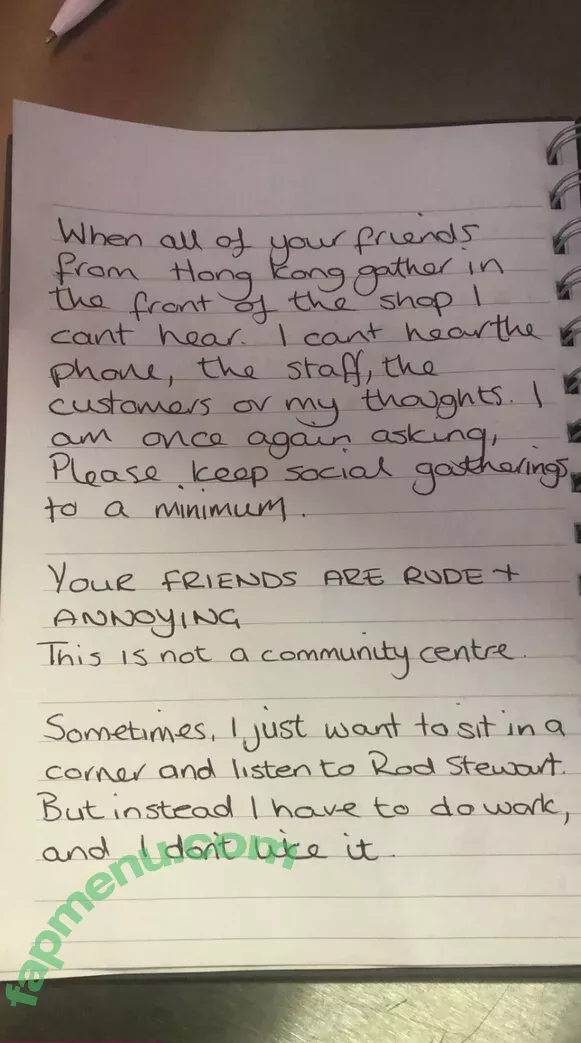 When all of your friends
from Hong Kong gather in
the front of the shop I
cant hear. I cant hear the
phone, the staff, the
customers or my thoughts. I
am once again asking,
Please keep social gatherings
to a minimum.
YOUR FRIENDS ARE RUDE +
ANNOYING
This is not a community centre.
Sometimes, I just want to sit in a
corner and listen to Rod Stewart.
But instead I have to do work,
and I don't like it.
fapmenu.com